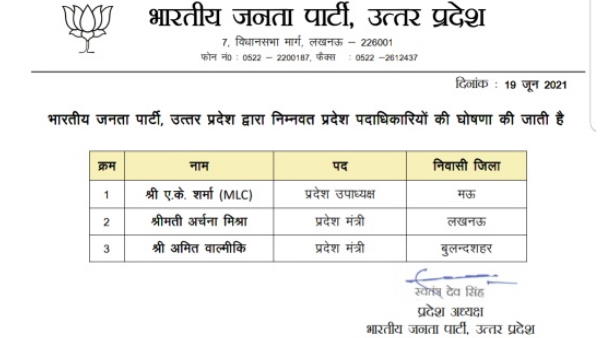 भारतीय जनता पार्टी, उत्तर प्रदेश
7, विधानसभा मार्ग, लखनऊ – 226001
फोन नं0 : 0522 – 2200187, फैक्स : 0522 –2612437
दिनांक : 19 जून 2021
भारतीय जनता पार्टी, उत्तर प्रदेश द्वारा निम्नवत प्रदेश पदाधिकारियों की घोषणा की जाती है
क्रम नाम पद निवासी जिला
1 श्री ए.के. शर्मा (MLC) प्रदेश उपाध्यक्ष मऊ
2 श्रीमती अर्चना मिश्रा प्रदेश मंत्री लखनऊ
3 श्री अमित वाल्मीकि प्रदेश मंत्री बुलन्दशहर
स्वतंत्र देव सिंह
प्रदेश अध्यक्ष
भारतीय जनता पार्टी, उत्तर प्रदेश